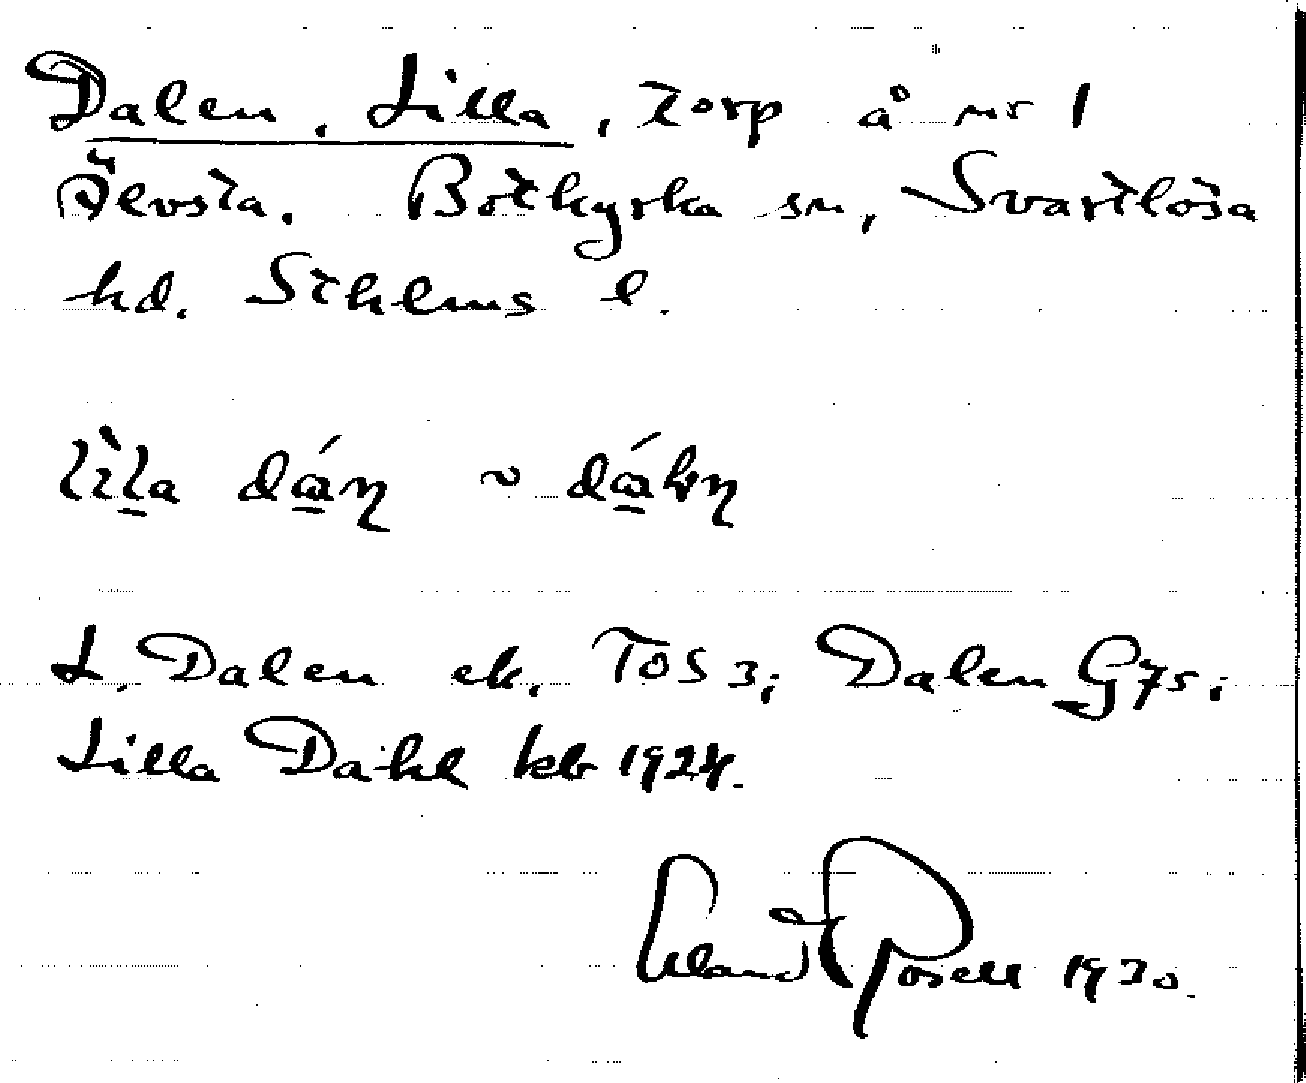 Dalen, Lilla, torp å nr 1
Älvsta. Botkyrka sn, Svartlösa
hd. Sthlms l.
lìla dán ~ dáln
L. Dalen ek. TOS 3; Dalen G75;
Lilla Dahl kb 1924.
Erland Rosell 1930.